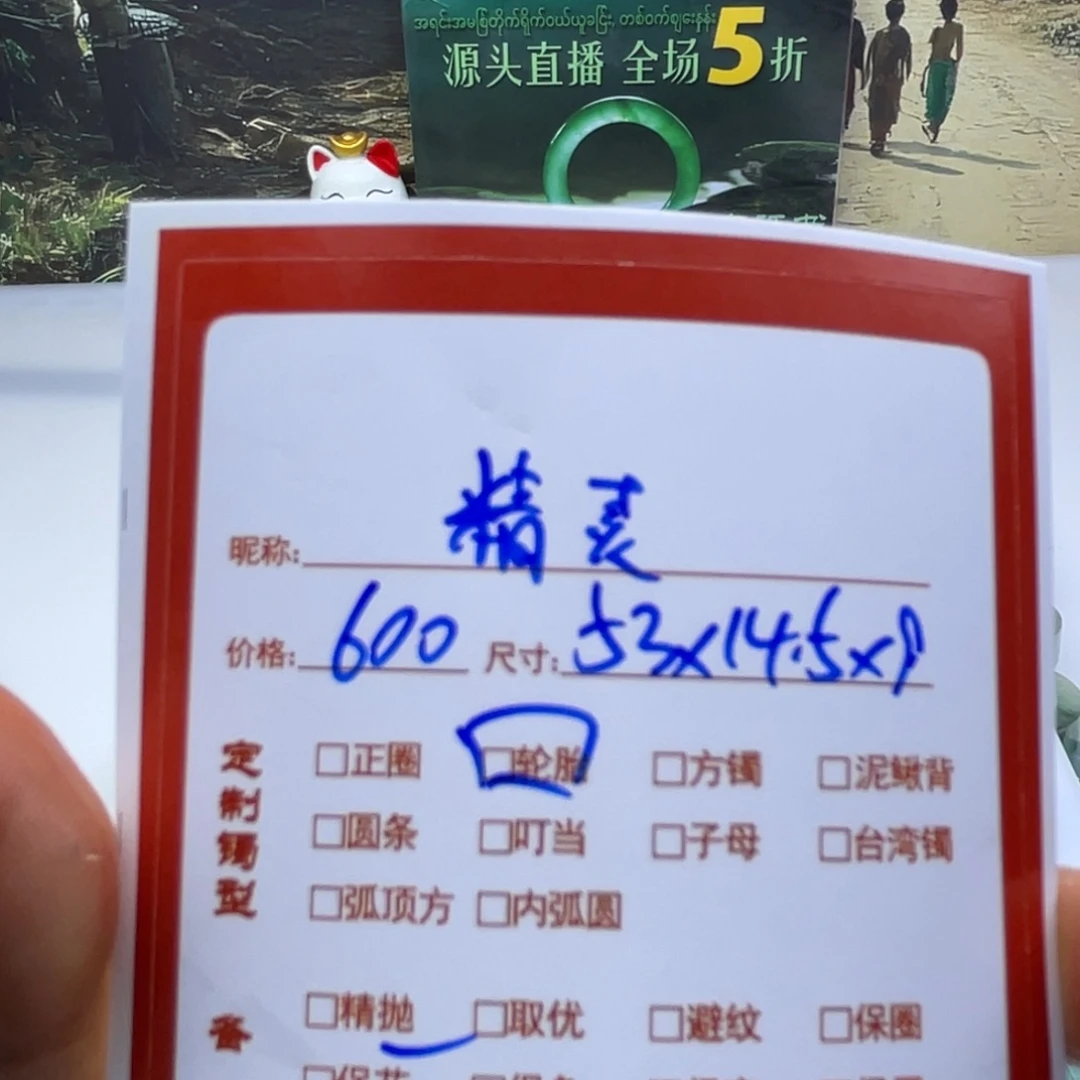 အရင်းအမြစ်တိုက်ရိုက်ဝယ်ယူခြင်း, တစ်ဝက်ဈေးနှုန်း
源头直播 全场5折
昵称: 精灵
价格: 600 尺寸: 53x14.5x9
定制镯型
□正圈 □轮胎 □方镯 □泥鳅背
□圆条 □叮当 □子母 □台湾镯
□弧顶方 □内弧圆
备 □精抛 □取优 □避纹 □保圈